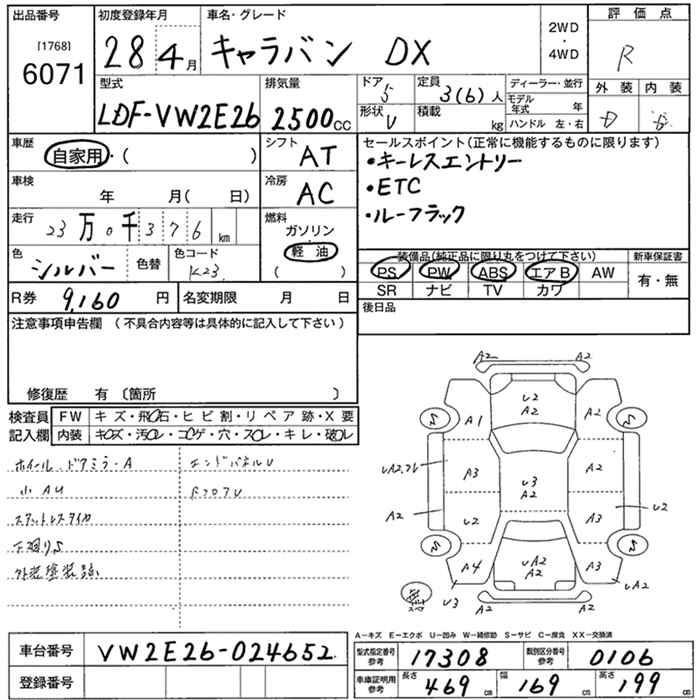 出品番号
[1768]
6071
初度登録年月
28年4月
車名・グレード
キャラバン DX
2WD
・
4WD
評価点
R
外装 内装
D
型式
LDF-VW2E26
排気量
2500cc
ドア
5
形状
V
定員
3(6)人
積載
kg
ディーラー・並行
モデル年式 年
ハンドル 左・右
車歴
自家用・( )
車検
年 月( 日)
走行
23万0千376km
色
シルバー
色替
色コード
K23
シフト
AT
冷房
AC
燃料
ガソリン
・
軽油
( )
セールスポイント(正常に機能するものに限ります)
・キーレスエントリー
・ETC
・ルーフラック
装備品(純正品に限り丸をつけて下さい)
PS PW ABS エアB AW
SR ナビ TV カワ
新車保証書
有・無
R券
9,160円
名変期限 月 日
後日品
注意事項申告欄 (不具合内容等は具体的に記入して下さい)
修復歴 有〔箇所 〕
検査員記入欄
FW キズ・飛石・ヒビ割・リペア跡・X要
内装 キズ・汚レ・コゲ・穴・スレ・キレ・破レ
ホイール、ドアミラーA
エンドパネルU
小AU
RフロアU
スタットレスタイヤ
下廻りS
A2 A2
U2
A2
A1 A2
A3 U3
A2 A2
A2 U2 A3 U2
A4 UA2
A2 A3
U3 A2 A2 UA2
A-キズ E-エクボ U-凹み W-補修跡 S-サビ C-腐食 XX-交換済
車台番号
VW2E26-024652
登録番号
型式指定番号
参考
17308
類別区分番号
参考
0106
車庫証明用
参考
長さ 469cm
幅 169cm
高さ 199cm